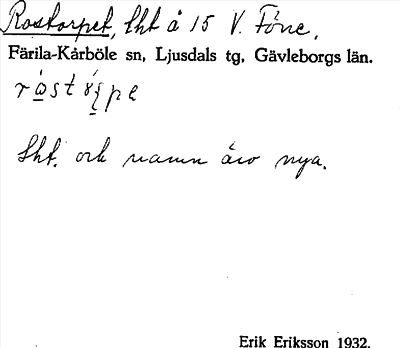 Rostorpet, lht å 15 V. Fåne,
Färila-Kårböle sn, Ljusdals tg, Gävleborgs län.
lht. och namn äro nya.
Erik Eriksson 1932.